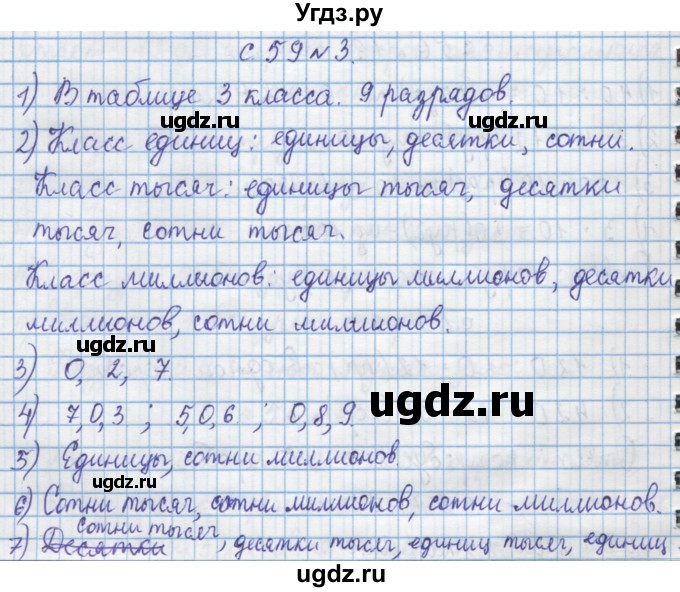 Угдз.ру
с 59 № 3.
1) В таблице 3 класса. 9 разрядов
ugdz.ru ugdz.ru
2) Класс единиц: единицы, десятки, сотни.
Класс тысяч: единицы тысяч, десятки
тысяч, сотни тысяч.
Класс миллионов: единицы миллионов, десятки
миллионов, сотни миллионов.
ugdz.ru
3) 0, 2, 7.
ugdz.ru
4) 7,0,3 ; 5,0,6 ; 0,8,9.
5) Единицы, сотни миллионов.
ugdz.ru ugdz.ru
6) Сотни тысяч, сотни миллионов, сотни миллионов.
сотни тысяч
7) Десятки, десятки тысяч, единиц тысяч, единиц
ugdz.ru